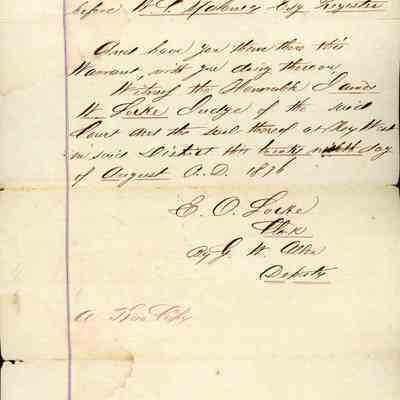 before W. C. Maloney Esq Register
And have you then there this
Warrant, with your doing thereon,
Witness the Honorable James
W. Locke Judge of the said
Court and the seal thereof at Key West
in said District this twenty ninth day
of August A.D. 1876
E. O. Locke
Clerk
By G. W. Allen
Deputy
A True Copy